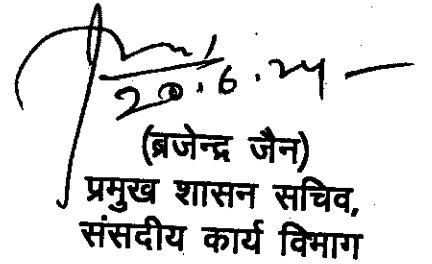 20.6.24
(ब्रजेन्द्र जैन)
प्रमुख शासन सचिव,
संसदीय कार्य विभाग